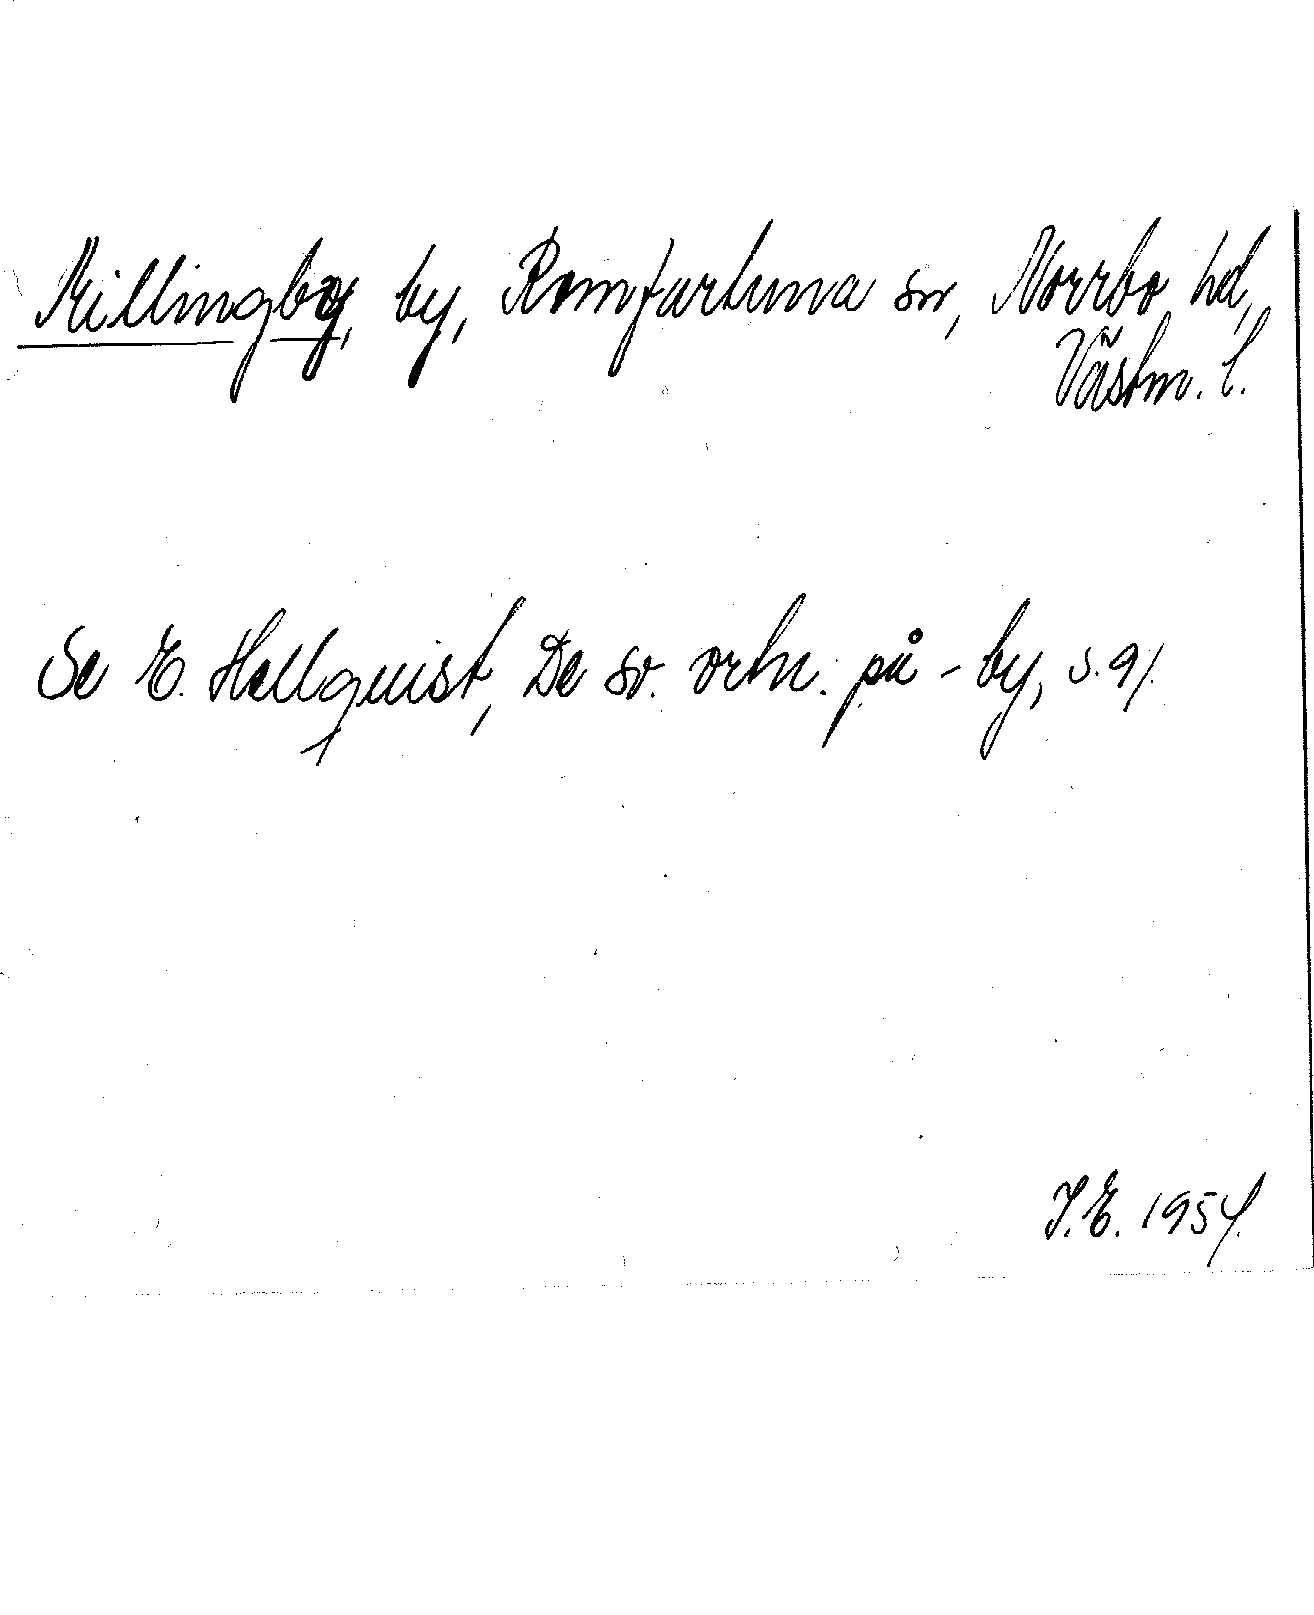 Killingby, by, Romfartuna sn, Norrbo hd,
Västm. l.
Se E. Hellquist, De sv. ortn. på -by, s. 91.
I.E. 1954.